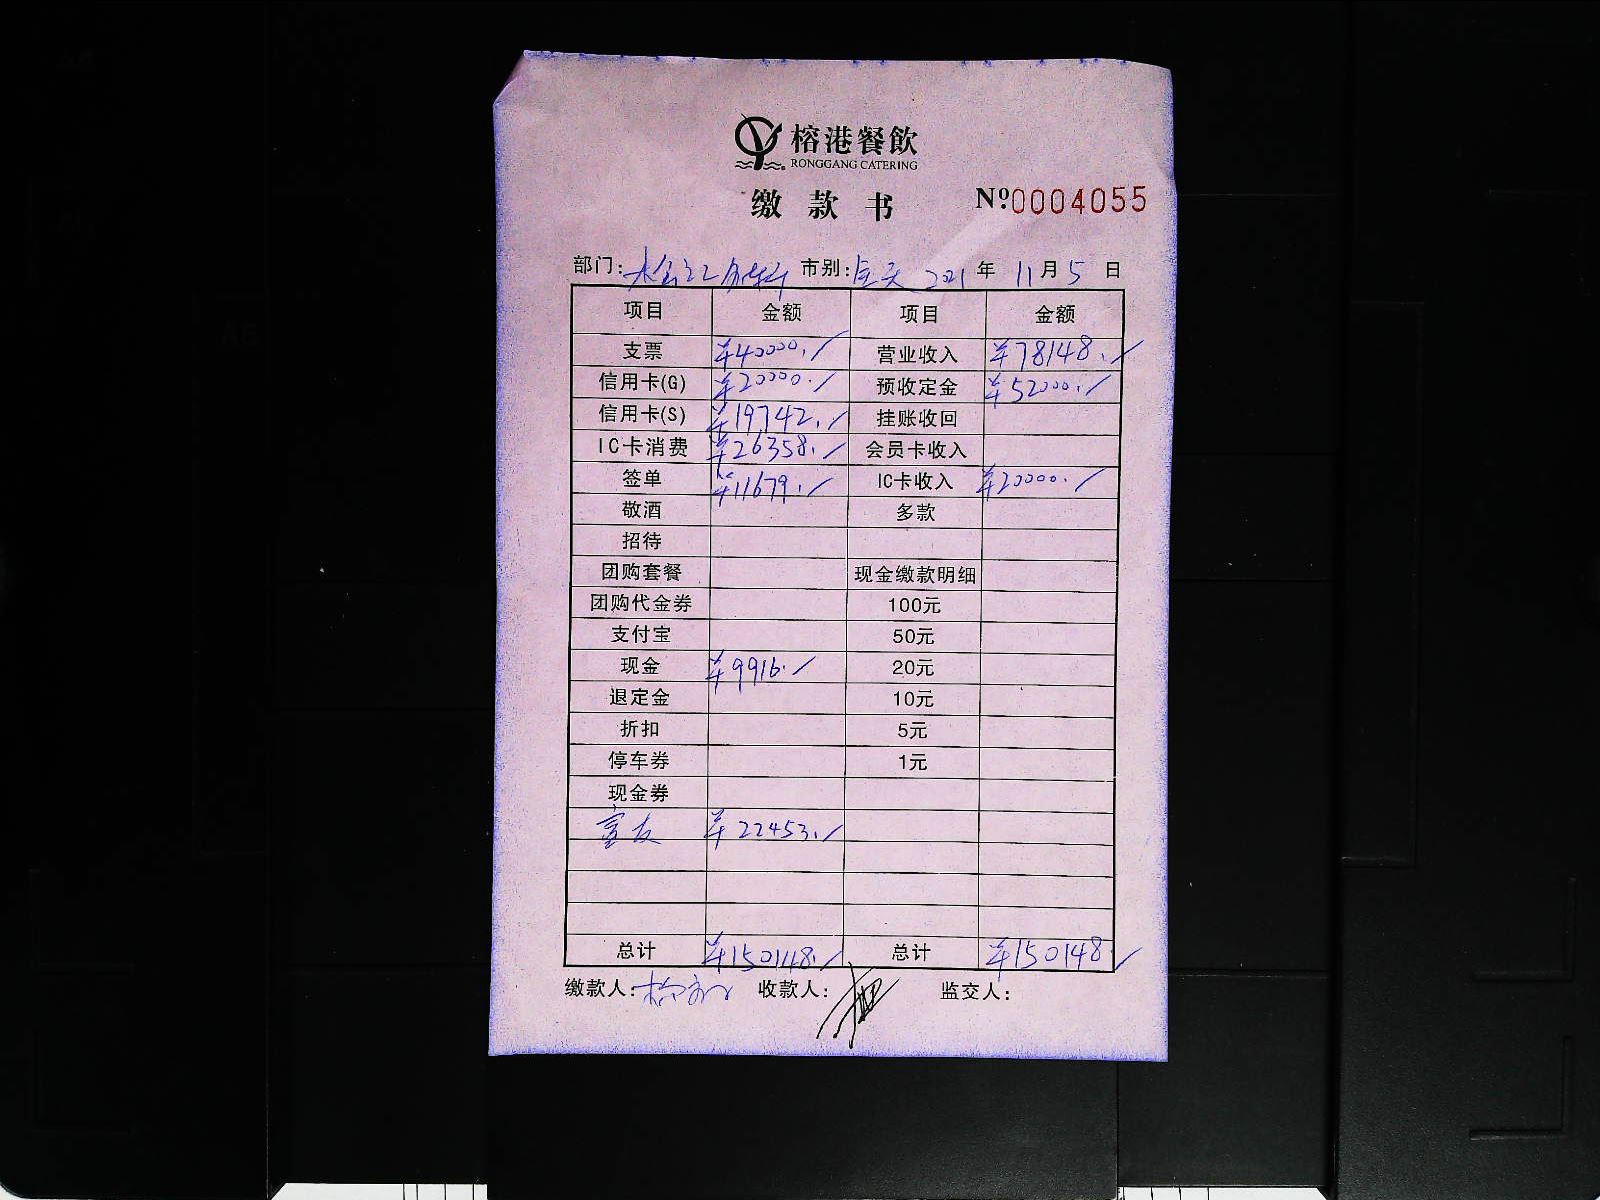 榕港餐飲
RONGGANG CATERING
缴款书 Nº0004055
部门: 市别:全天 2021年11月5日
项目 金额 项目 金额
支票 ¥40000. 营业收入 ¥78148.
信用卡(G) ¥20000. 预收定金 ¥52000.
信用卡(S) ¥19742. 挂账收回
IC卡消费 ¥26358. 会员卡收入
签单 ¥11679. IC卡收入 ¥20000.
敬酒 多款
招待
团购套餐 现金缴款明细
团购代金券 100元
支付宝 50元
现金 ¥9916. 20元
退定金 10元
折扣 5元
停车券 1元
现金券
¥22453.
总计 ¥150148. 总计 ¥150148.
缴款人: 收款人: 监交人: